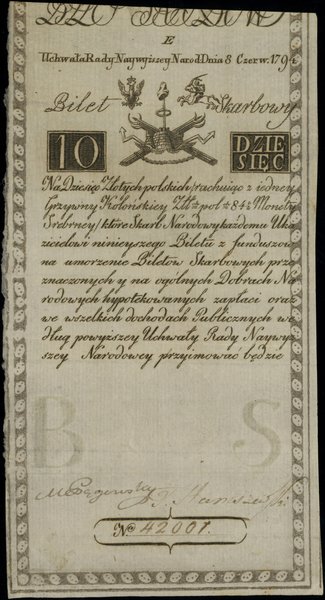 E
Uchwała Rady Naywyższey Narod. Dnia 8 Czerw. 1794
Bilet Skarbowy
10 DZIE
SIĘC
Na Dziesięć Złotych polskich/rachuiąc z iedney
Grzywny Kolońskiey Złt: pol: 84½ Monety
Srebrney/ które Skarb Narodowy każdemu Oka
zicielowi ninieyszego Biletu z funduszow
na umorzenie Biletów Skarbowych prze
znaczonych y na ogólnych Dobrach Na
rodowych hypotekowanych zapłaci oraz
we wszelkich dochodach Publicznych we
dług powyższey Uchwały Rady Naywyż
szey Narodowey przyimować będzie
B S
No 42001.